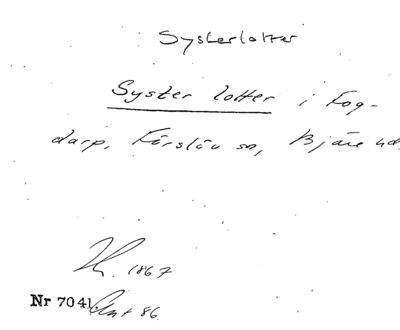 Systerlotter
Syster lotter i Fog-
darp, Förslöv sn, Bjäre hd.
1867
Nr 7041
86